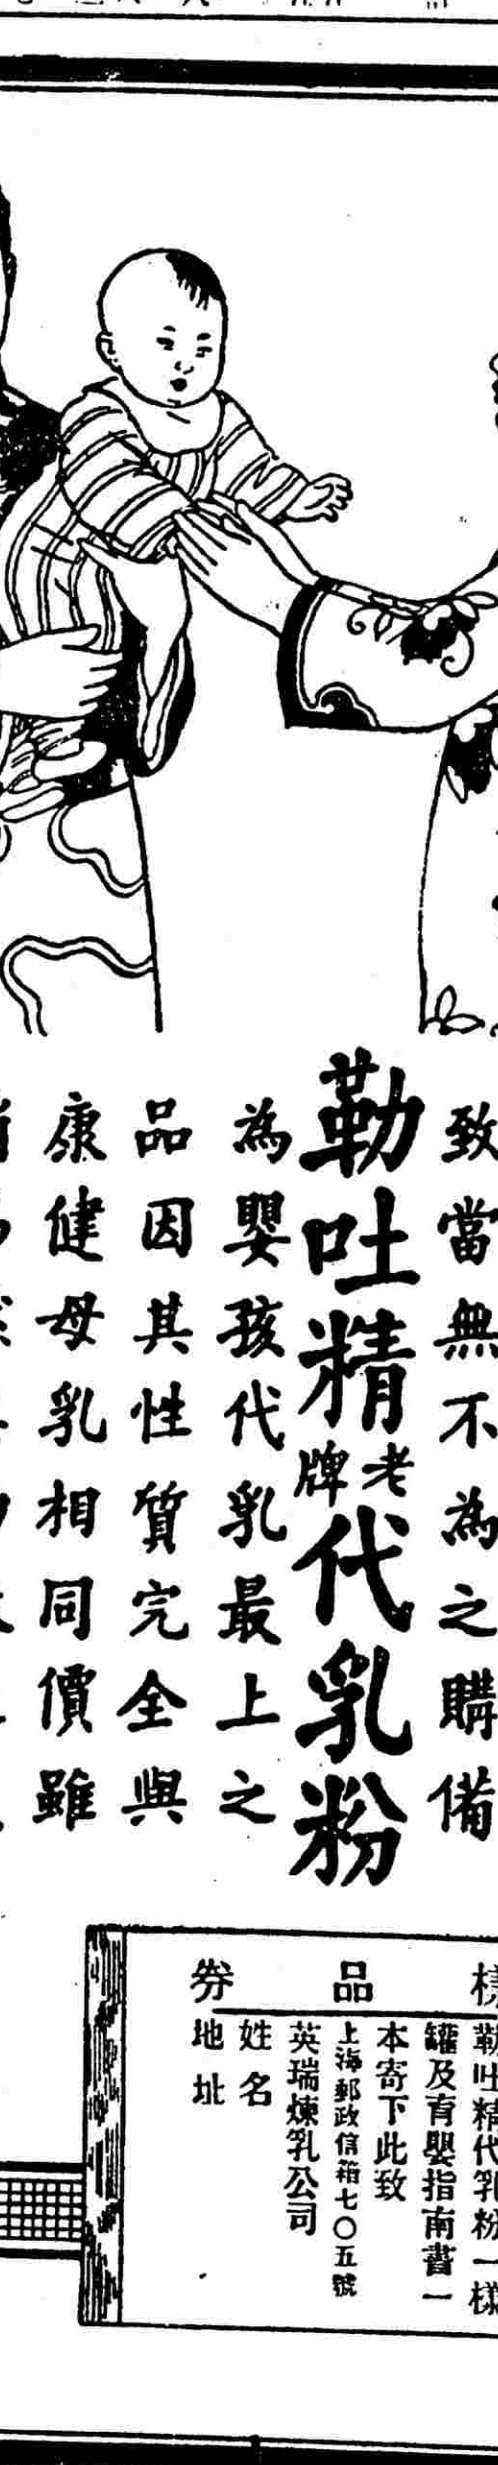 致當無不為之購備
勒吐精老牌代乳粉
為嬰孩代乳最上之
品因其性質完全與
康健母乳相同價雖
樣品券
勒吐精代乳粉一樣
罐及育嬰指南書一
本寄下此致
上海郵政信箱七〇五號
英瑞煉乳公司
姓名
地址